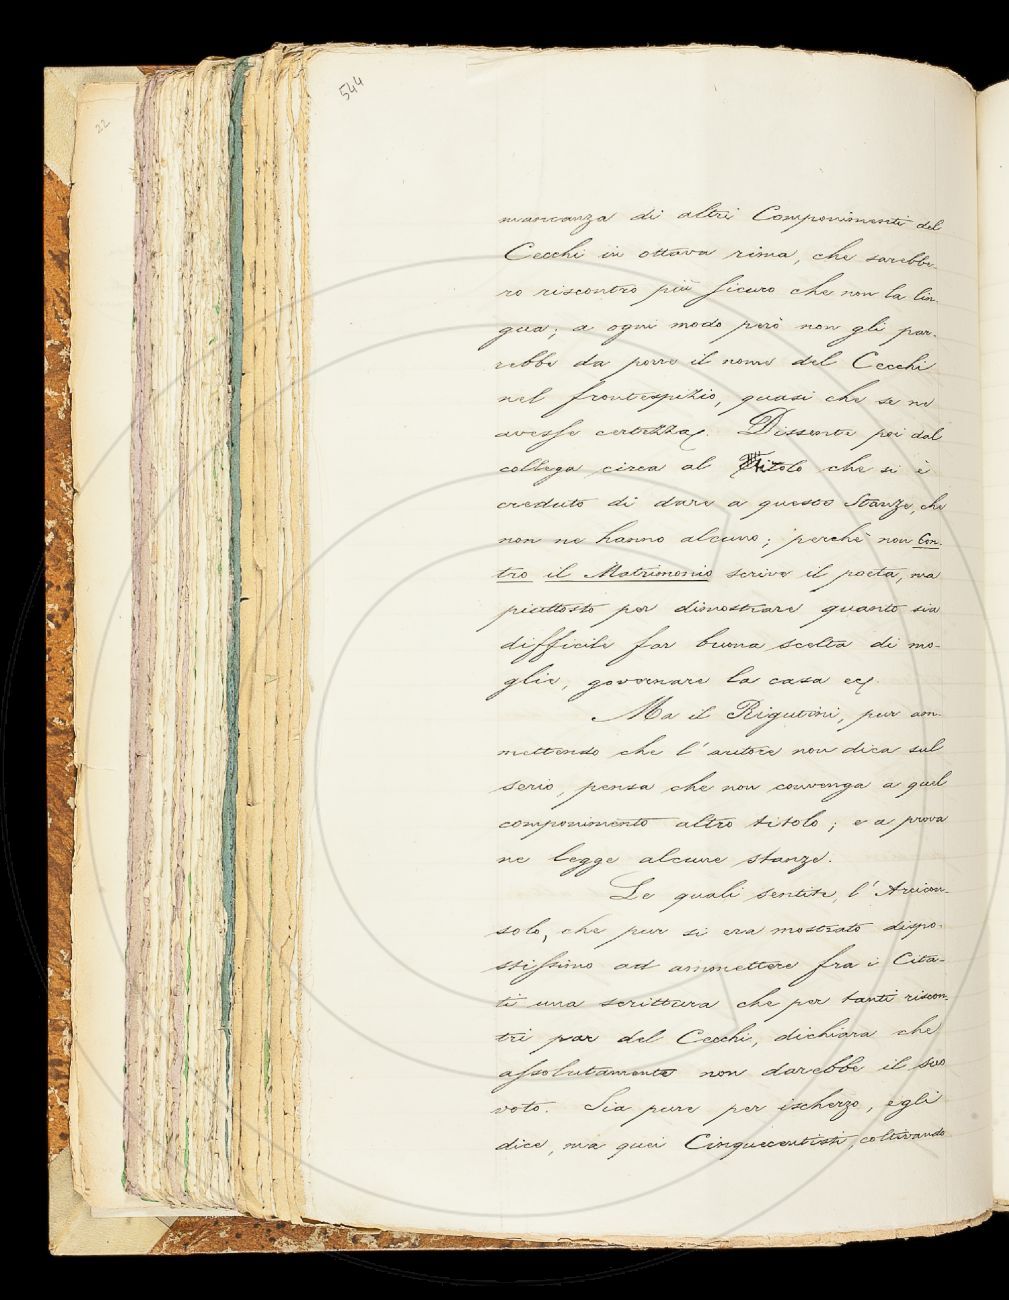 22
544
mancanza di altri Componimenti del
Cecchi in ottava rima, che sarebbe-
ro riscontro più sicuro che non la lin-
gua; a ogni modo però non gli par-
rebbe da porre il nome del Cecchi
nel frontespizio, quasi che se ne
avesse certezza. Dissente poi dal
collega circa al Titolo che si è
creduto di dare a queste Stanze, che
non ne hanno alcuno; perchè non Con-
tro il Matrimonio scrive il poeta, ma
piuttosto per dimostrare quanto sia
difficile far buona scelta di mo-
glie, governare la casa ec.
Ma il Rigutini, pur am-
mettendo che l'autore non dica sul
serio, pensa che non convenga a quel
componimento altro titolo; e a prova
ne legge alcune stanze.
Le quali sentite, l'Arcicon-
solo, che pur si era mostrato dispo-
stissimo ad ammettere fra i Cita-
ti una scrittura che per tanti riscon-
tri par del Cecchi, dichiara che
assolutamente non darebbe il suo
voto. Sia pure per ischerzo, egli
dice, ma quei Cinquecentisti, coltivando